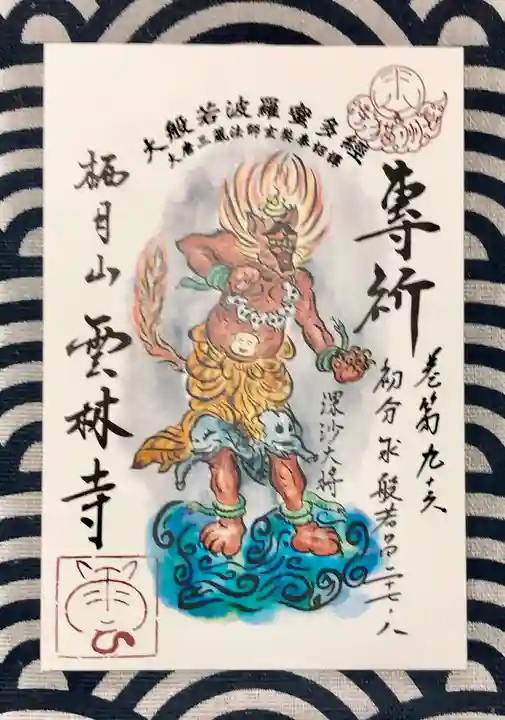 大般若波羅蜜多經
大唐三蔵法師玄奘奉詔譯
專祈
卷第九十六
初分求般若品二十七・八
深沙大将
栖月山 雲林寺